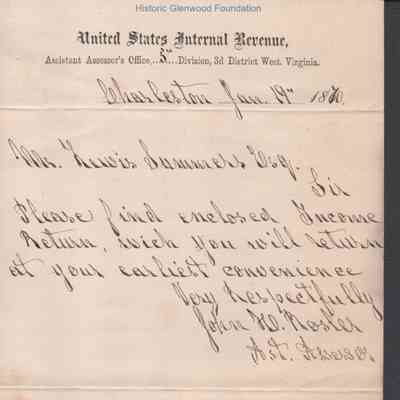 Historic Glenwood Foundation
United States Internal Revenue,
Assistant Assessor's Office, 5th Division, 3d District West. Virginia.
Charleston Jan. 19th 1870.
Mr. Lewis Summers Esq.
Sir
Please find enclosed Income
Return, wich you will return
at your earliest convenience
Very Respectfully
John W.
Ast. Assessor